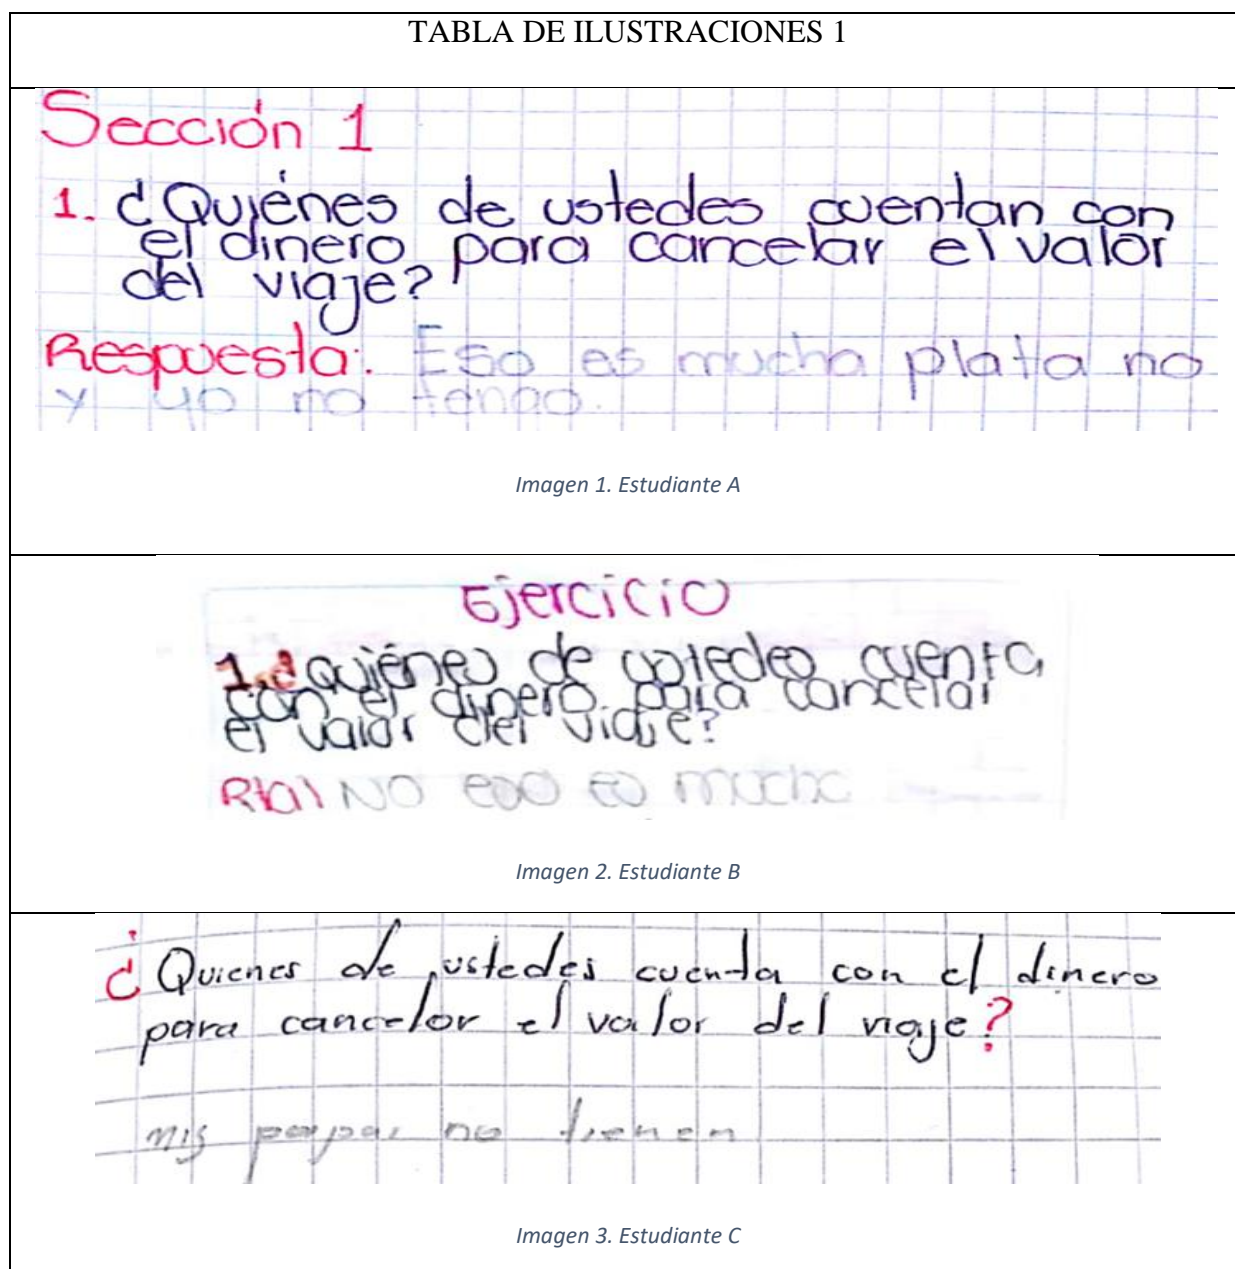 TABLA DE ILUSTRACIONES 1
Sección 1
1. ¿Quiénes de ustedes cuentan con
el dinero para cancelar el valor
del viaje?
Respuesta: Eso es mucha plata no
y yo no tengo.
Imagen 1. Estudiante A
Ejercicio
1. ¿quiénes de ustedes cuenta
con el dinero para cancelar
el valor del viaje?
Rta\ NO eso es mucha
Imagen 2. Estudiante B
¿Quienes de ustedes cuenta con el dinero
para cancelar el valor del viaje?
mis papas no tienen
Imagen 3. Estudiante C